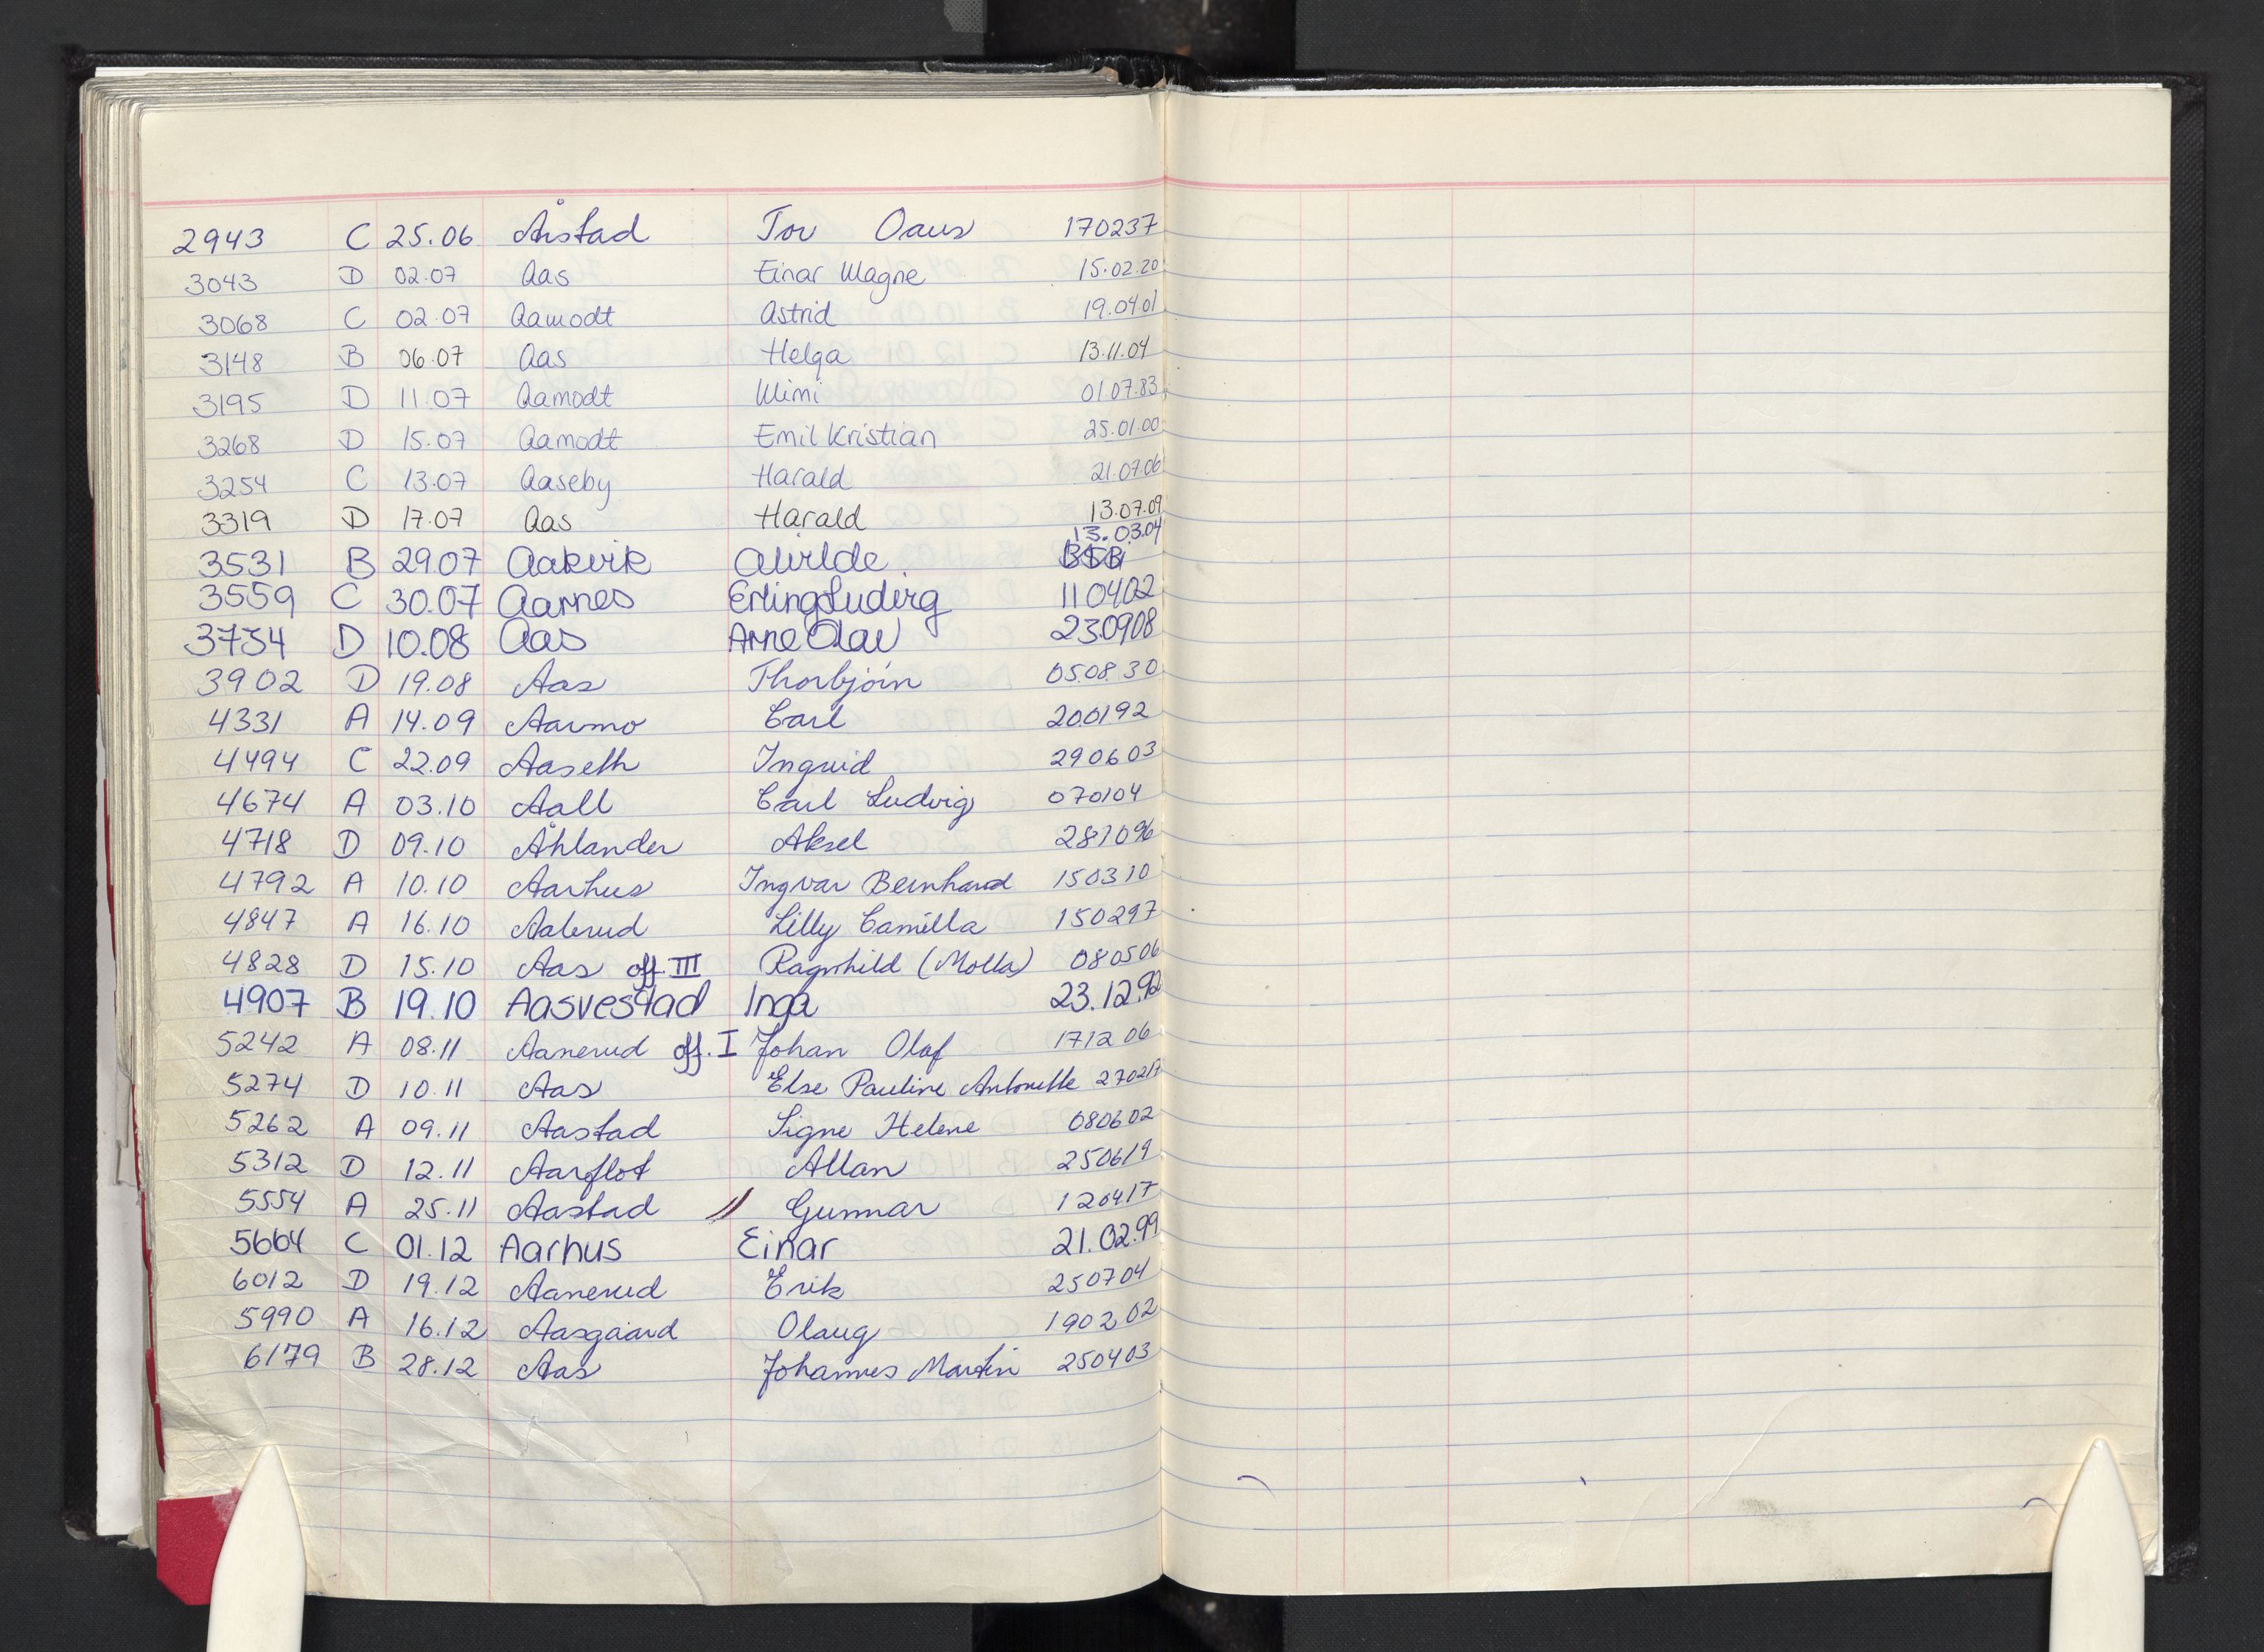 2943 C 25.06 Årstad Tov Oaus 170237
3043 D 02.07 Aas Einar Magne 15.02.20
3068 C 02.07 Aamodt Astrid 19.04.01
3148 B 06.07 Aas Helga 13.11.04
3195 D 11.07 Aamodt Mimi 01.07.83
3268 D 15.07 Aamodt Emil Kristian 25.01.00
3254 C 13.07 Aaseby Harald 21.07.06
3319 D 17.07 Aas Harald 13.07.09
13.03.04
3531 B 29.07 Aakvik Alvilde
3559 C 30.07 Aarnes Erling Ludvig 110402
3734 D 10.08 Aas Arne Olav 230908
3902 D 19.08 Aas Thorbjørn 050830
4331 A 14.09 Aarmo Carl 200192
4494 C 22.09 Aaseth Ingrid 290603
4674 A 03.10 Aall Carl Ludvig 070104
4718 D 09.10 Åhlander Aksel 281096
4792 A 10.10 Aarhus Ingvar Bernhard 150310
4847 A 16.10 Aalerud Lilly Camilla 150297
4828 D 15.10 Aas off. III Ragnhild (Molla) 080506
4907 B 19.10 Aasvestad Inga 23.12.92
5242 A 08.11 Aanerud off. I Johan Olaf 171206
5274 D 10.11 Aas Else Pauline Antonette 270217
5262 A 09.11 Aastad Signe Helene 080602
5312 D 12.11 Aarflot Allan 250619
5554 A 25.11 Aastad // Gunnar 120417
5664 C 01.12 Aarhus Einar 21.02.99
6012 D 19.12 Aanerud Erik 250704
5990 A 16.12 Aasgaard Olaug 190202
6179 B 28.12 Aas Johannes Martin 250403